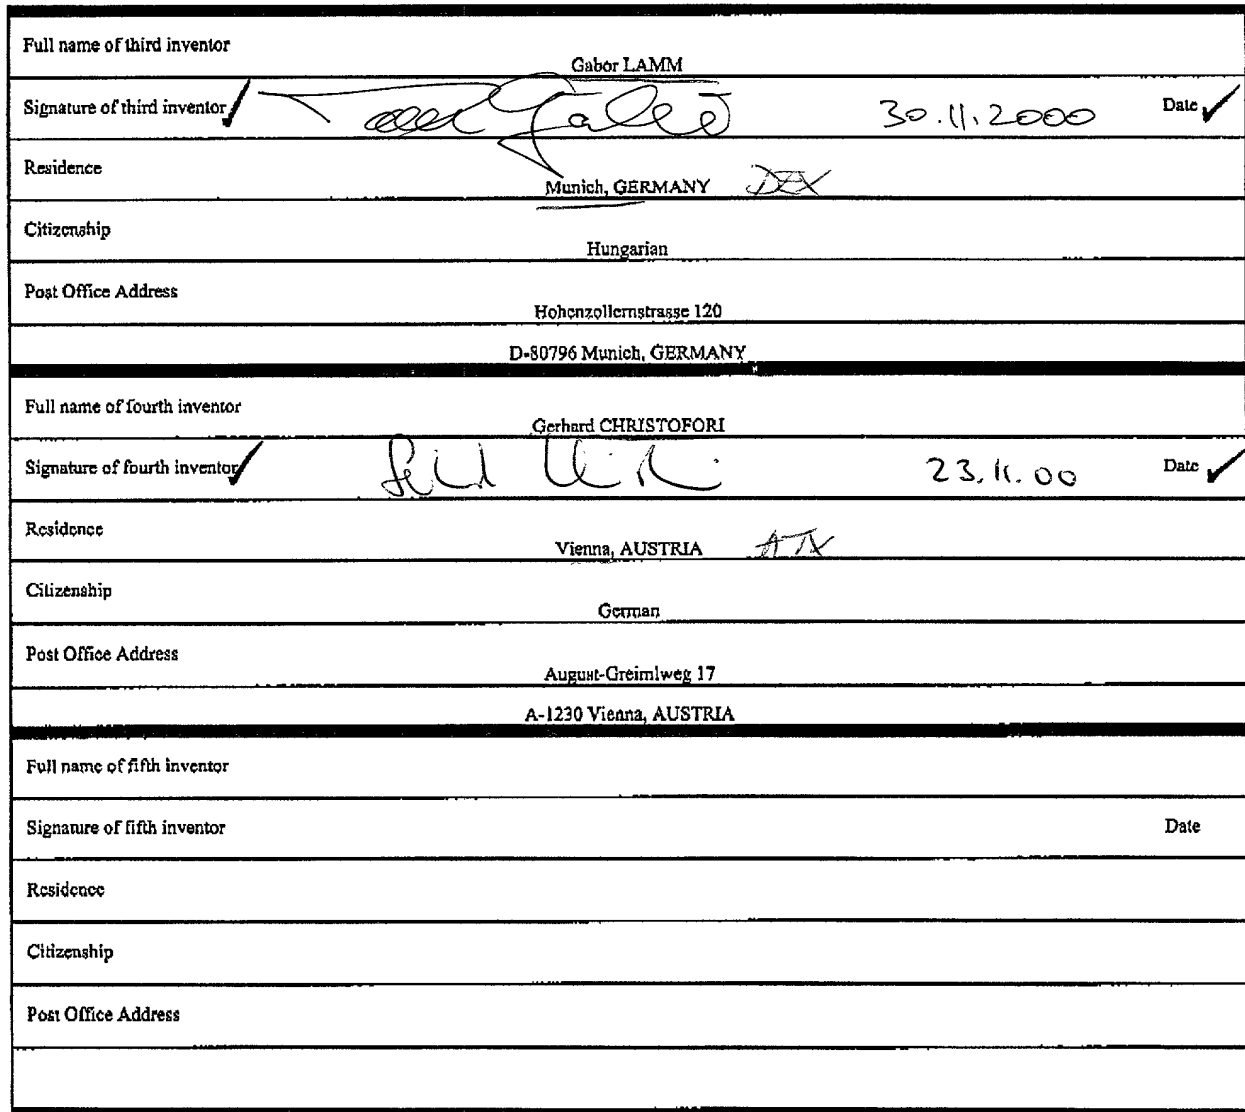 Full name of third inventor
Gabor LAMM
Signature of third inventor 30.11.2000 Date
Residence
Munich, GERMANY DEX
Citizenship
Hungarian
Post Office Address
Hohenzollernstrasse 120
D-80796 Munich, GERMANY
Full name of fourth inventor
Gerhard CHRISTOFORI
Signature of fourth inventor 23.11.00 Date
Residence
Vienna, AUSTRIA ATX
Citizenship
German
Post Office Address
August-Greimlweg 17
A-1230 Vienna, AUSTRIA
Full name of fifth inventor
Signature of fifth inventor Date
Residence
Citizenship
Post Office Address